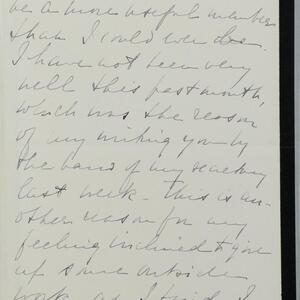 be a more useful member
than I could ever be.
I have not been very
well this past month,
which was the reason
of my writing you by
the hand of my secretary
last week. This is an-
other reason for my
feeling inclined to give
up some outside
work as I find I